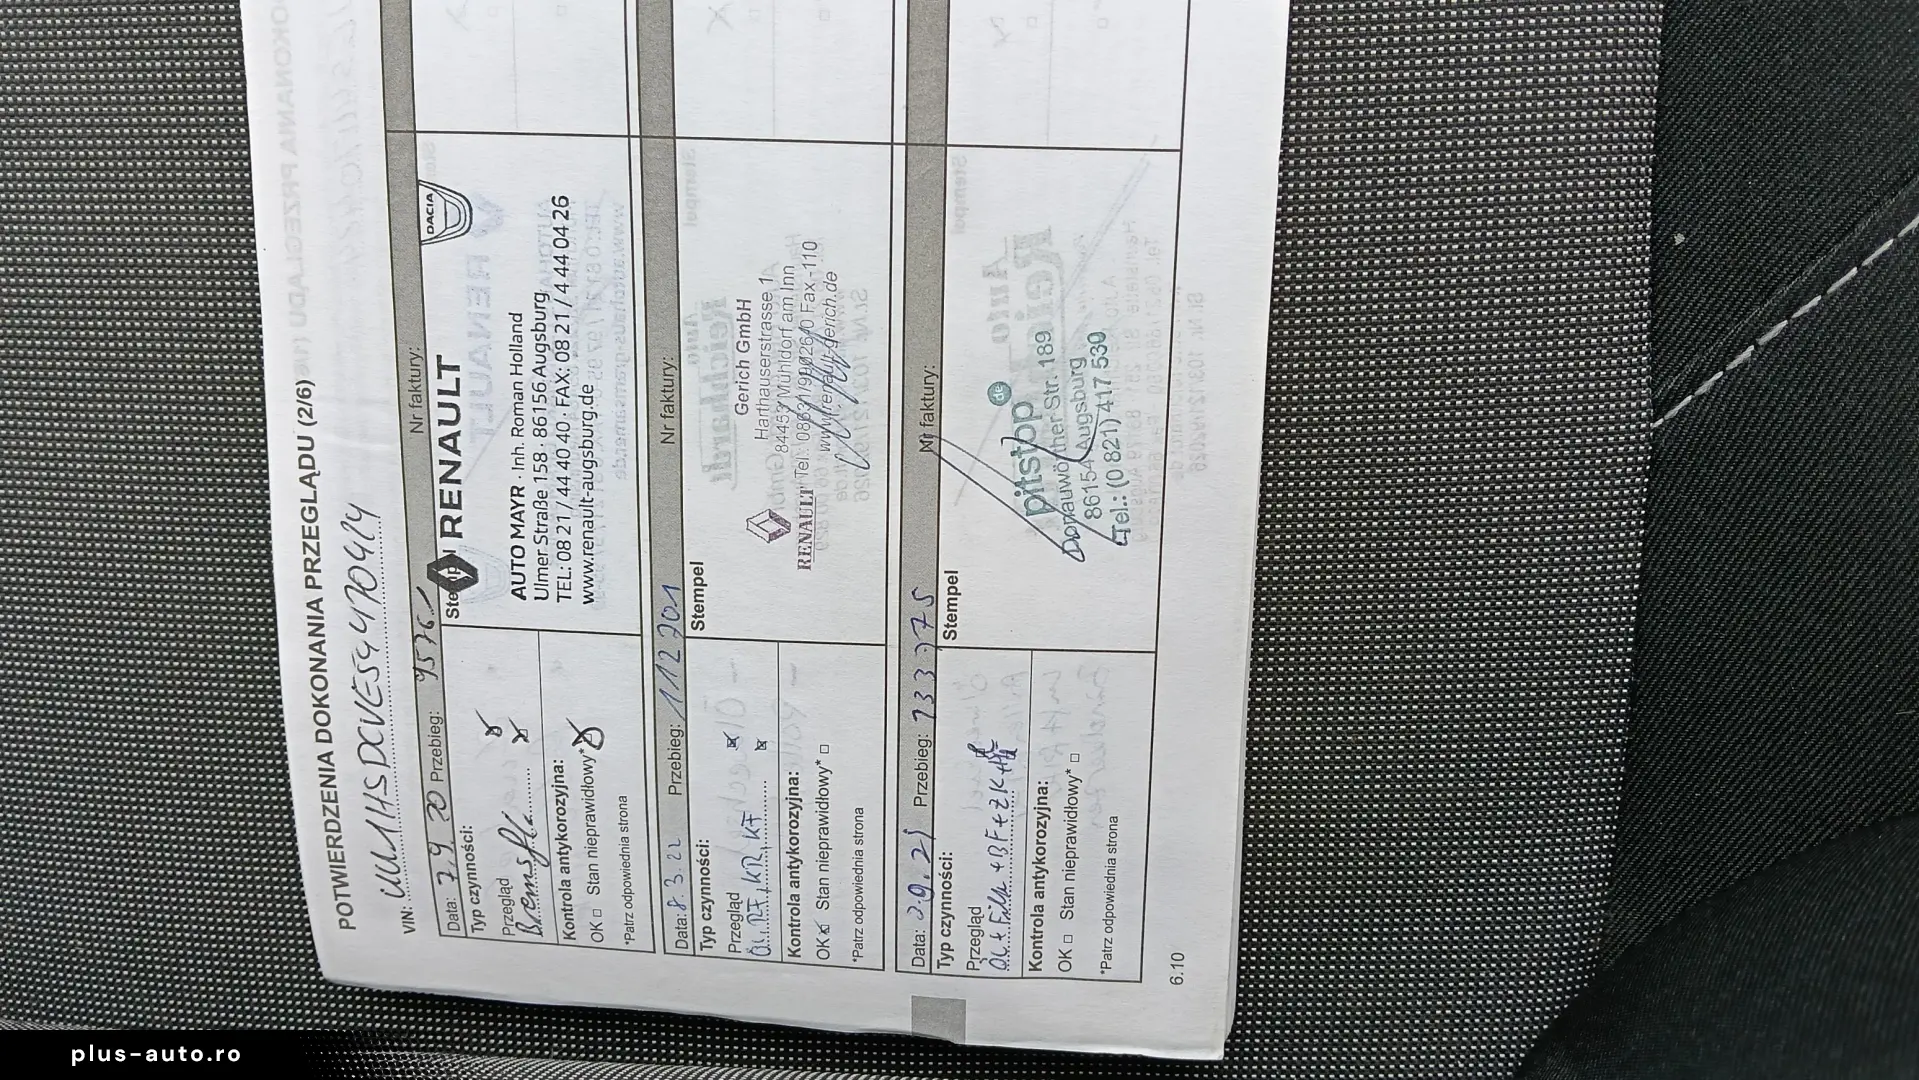 POTWIERDZENIA DOKONANIA PRZEGLĄDU (2/6)
VIN: UU1HSDCVE54470414
Data: 7.9 20 Przebieg: Nr faktury:
Typ czynności: Stempel
Przegląd
Bremsfl.
Kontrola antykorozyjna:
OK □ Stan nieprawidłowy*
*Patrz odpowiednia strona
RENAULT
DACIA
AUTO MAYR · Inh. Roman Holland
Ulmer Straße 158 · 86156 Augsburg
TEL: 08 21 / 44 40 40 · FAX: 08 21 / 4 44 04 26
www.renault-augsburg.de
Data: 8.3.22 Przebieg: 112701 Nr faktury:
Typ czynności: Stempel
Przegląd
KR KF
Kontrola antykorozyjna:
OK Stan nieprawidłowy* □
*Patrz odpowiednia strona
Gerich GmbH
Harthauserstrasse 1
84453 Mühldorf am Inn
Tel.: 08631/990260 Fax -110
www.renault-gerich.de
RENAULT
Data: Przebieg: 133775 Nr faktury:
Typ czynności: Stempel
Przegląd
Kontrola antykorozyjna:
OK □ Stan nieprawidłowy* □
*Patrz odpowiednia strona
pitstop de
Donauwörther Str. 189
86154 Augsburg
Tel.: (0 821) 417 539
6.10
plus-auto.ro